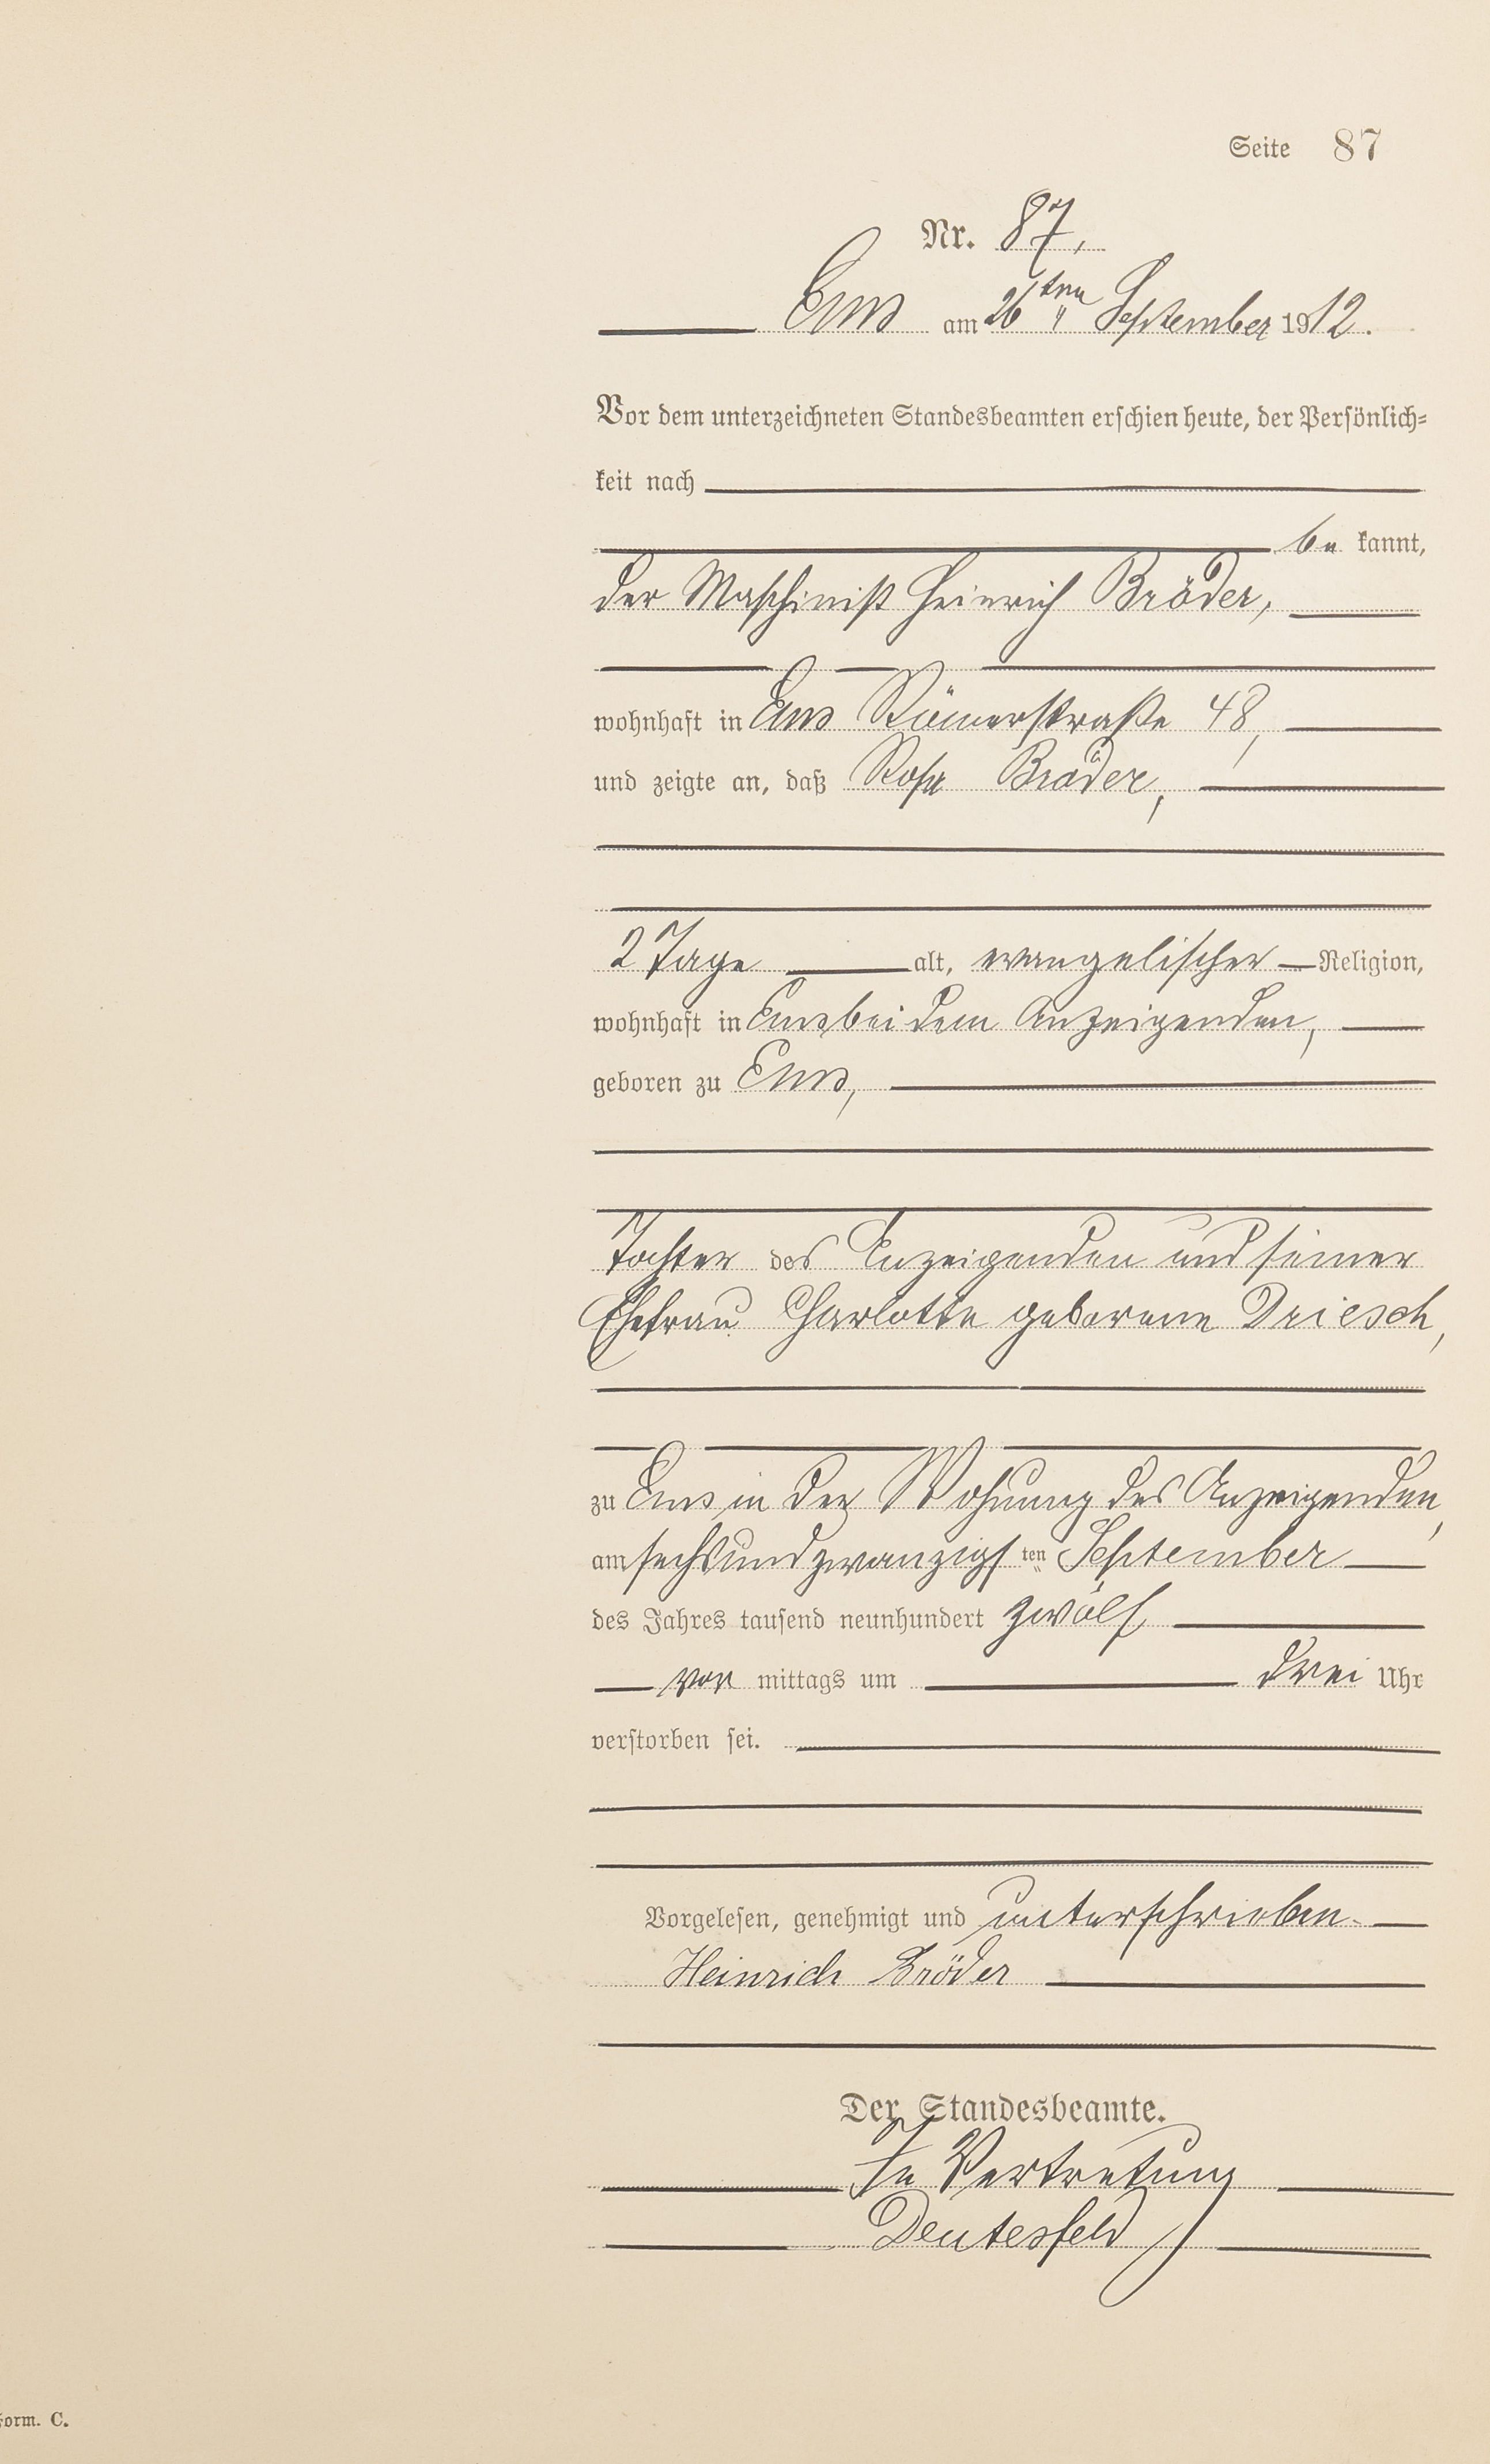 Seite 87
Nr. 87,
Ems am 26ten September 1912.
Vor dem unterzeichneten Standesbeamten erschien heute, der Persönlich=
keit nach
be kannt,
der Maschinist Heinrich Bröder,
wohnhaft in Ems Römerstraße 48,
und zeigte an, daß Rosa Bröder,
2 Tage alt, evangelischer Religion,
wohnhaft in Ems bei dem Anzeigenden,
geboren zu Ems,
Tochter des Anzeigenden und seiner
Ehefrau Charlotte geborene Driesch,
zu Ems in der Wohnung des Anzeigenden,
am sechsundzwanzigsten September
des Jahres tausend neunhundert zwölf
vor mittags um drei Uhr
verstorben sei.
Vorgelesen, genehmigt und unterschrieben.
Heinrich Bröder
Der Standesbeamte.
In Vertretung
Deutesfeld
Form. C.